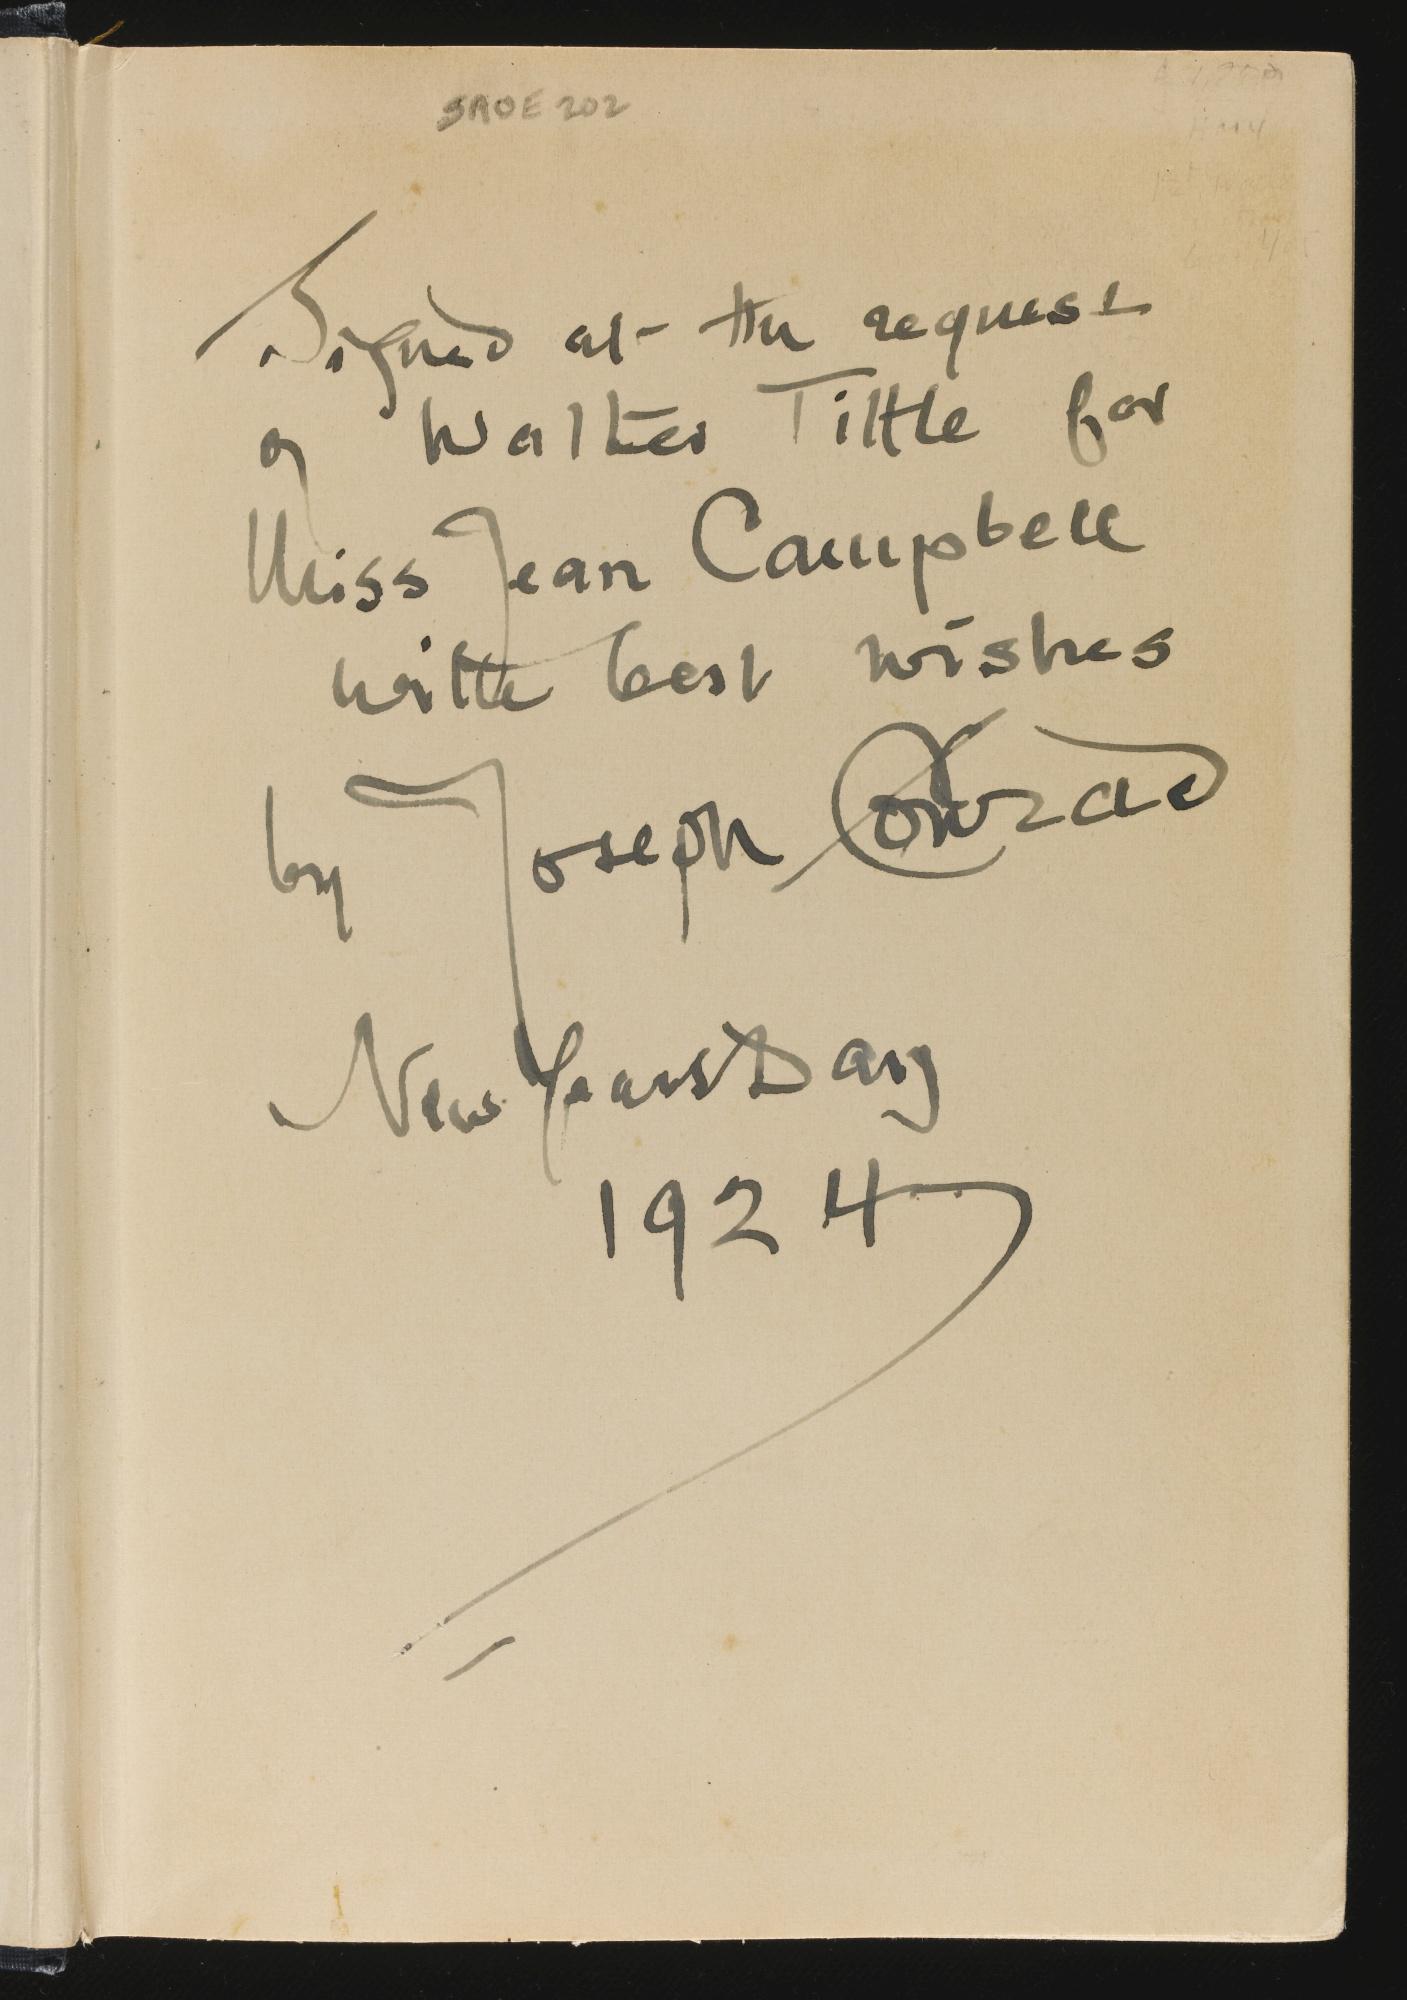 SAOE 202
Signed at the request
of Walter Tittle for
Miss Jean Campbell
with best wishes
by Joseph Conrad
New Years Day
1924